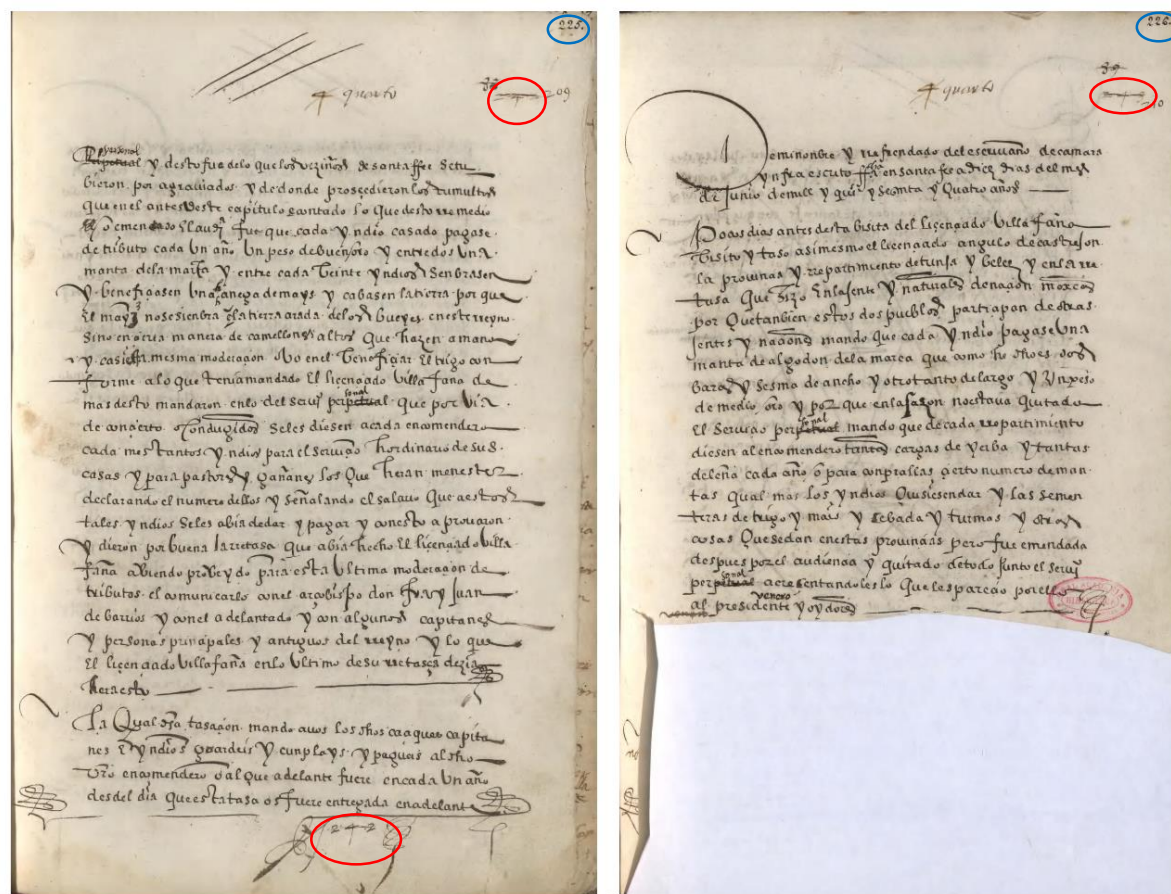 225.
4 quarto
38 242 209
personal
perpetual y desto fue de lo que los vezinos de santaffee se tu
bieron por agraviados y de donde prosçedieron los tumultos
que en el antes deste capitulo econtado lo que desto rremedio
y emendo El audia fue que cada yndio casado pagase
de tributo cada Un año Un peso de buen oro y entre dos Una
manta de la marca y entre cada Veinte yndios senbrasen
y benefiçiasen Una fanega de mays y cabasen la tierra por que
El mayz no se sienbra en la tierra arada de los bueyes en este rreyno
Sino en çiria manera de camellones altos Que hazen a mano
y casi esta mesma moderaçion Ubo en el Beneficiar El trigo con
forme a lo que tenia mandado El liçençiado Villa faña de
mas desto mandaron en lo del serui° perpetual sonal que por Via
de conçierto o conduzidos Se les diesen a cada encomendero
cada mes tantos yndios para el servicio hordinario de sus
casas y para pastores y gañanes los Que heran menester
declarando el numero dellos y señalando el salario Que a estos
tales yndios Se les abia de dar y pagar y con esto aprovaron
y dieron por buena la rretasa que abia hecho El licençiado Villa
faña abiendo probeydo para esta Ultima moderaçion de
tributos el comunicarlo con el arçobispo don fray Juan
de barrios y con el adelantado y con algunos capitanes
y personas prinçipales y antiguos del rreyno y lo que
El liçençiado Villafaña en lo Ultimo de su rretaça dezia
hera esto
La Qual dha tasaçion mando a vos los dhos caçiques capita
nes E yndios guardeis y cunplays y pagueis al dho
vro encomendero o al que adelante fuere en cada Un año
desdel dia que esta tasa os fuere entregada en adelante
242
226.
4 quarto
39 243 210
de mi nonbre y rrefrendado del escriuano de camara
ynfra escrito ffha en santa fee a diez dias del mes
de Junio de mill y quis y sesenta y Quatro años
Pocos dias antes desta bisita del licençiado Villa faña
Visito y taso asimesmo el licençiado angulo de castrejon
la provinçia y rrepartimiento de tunja y belez y en la rre
tasa Que hizo En la jente y naturales de naçion moxcas
por Que tanbien estos dos pueblos partiçipan de otras
jentes y naçiones mando que cada yndio pagase Una
manta de algodon de la marca que como he dho es dos
baras y sesma de ancho y otro tanto de largo y Un peso
de medio oro y por que en la sazon no estava quitado
El Serviçio perpetual sonal mando que de cada rrepartimiento
diesen al encomendero tantas cargas de yerba y tantas
de leña cada año o para conprallas çierto numero de man
tas qual mas los yndios Quisiesen dar y las semen
teras de trigo y maiz y sebada y turmas y otras
cosas Que se dan en estas provinçias pero fue emendada
despues por el audiencia y quitado de todo punto el serui°
perpetual sonal acresentandoles lo que les pareçio por ello
al presidente venero y oydores
venero